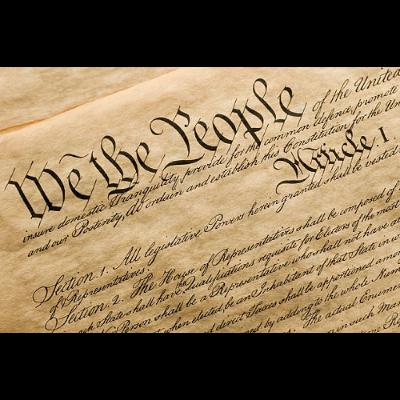 We the People of the United
insure domestic Tranquility, provide for the common defence, promote
and our Posterity, do ordain and establish this Constitution for the Uni
Article. I.
Section. 1. All legislative Powers herein granted shall be vested
of Representatives.
Section. 2. The House of Representatives shall be composed of
State shall have the Qualifications requisite for Electors of the most
No Person shall be a Representative who shall not have
when elected, be an Inhabitant of that State in w
and direct Taxes shall be apportioned amon
by adding to the whole Num
The actual Enumer
in such Man